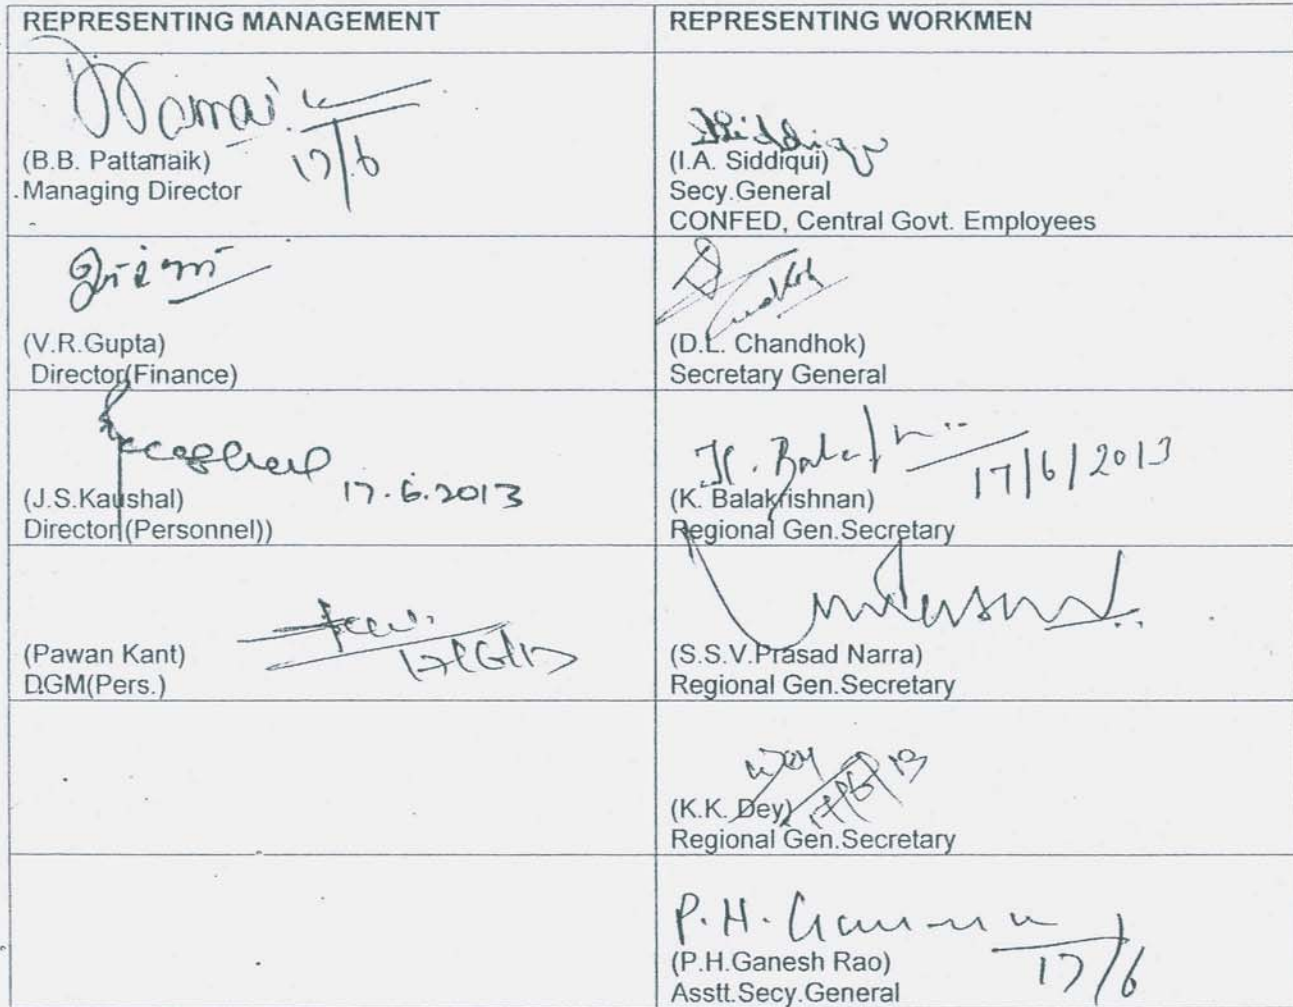 REPRESENTING MANAGEMENT
REPRESENTING WORKMEN
17/6
(B.B. Pattanaik)
Managing Director
Siddiqui
(I.A. Siddiqui)
Secy.General
CONFED, Central Govt. Employees
(V.R.Gupta)
Director(Finance)
(D.L. Chandhok)
Secretary General
17.6.2013
(J.S.Kaushal)
Director(Personnel))
17/6/2013
(K. Balakrishnan)
Regional Gen.Secretary
17/6/13
(Pawan Kant)
DGM(Pers.)
(S.S.V.Prasad Narra)
Regional Gen.Secretary
17/6/13
(K.K. Dey)
Regional Gen.Secretary
P.H.
17/6
(P.H.Ganesh Rao)
Asstt.Secy.General